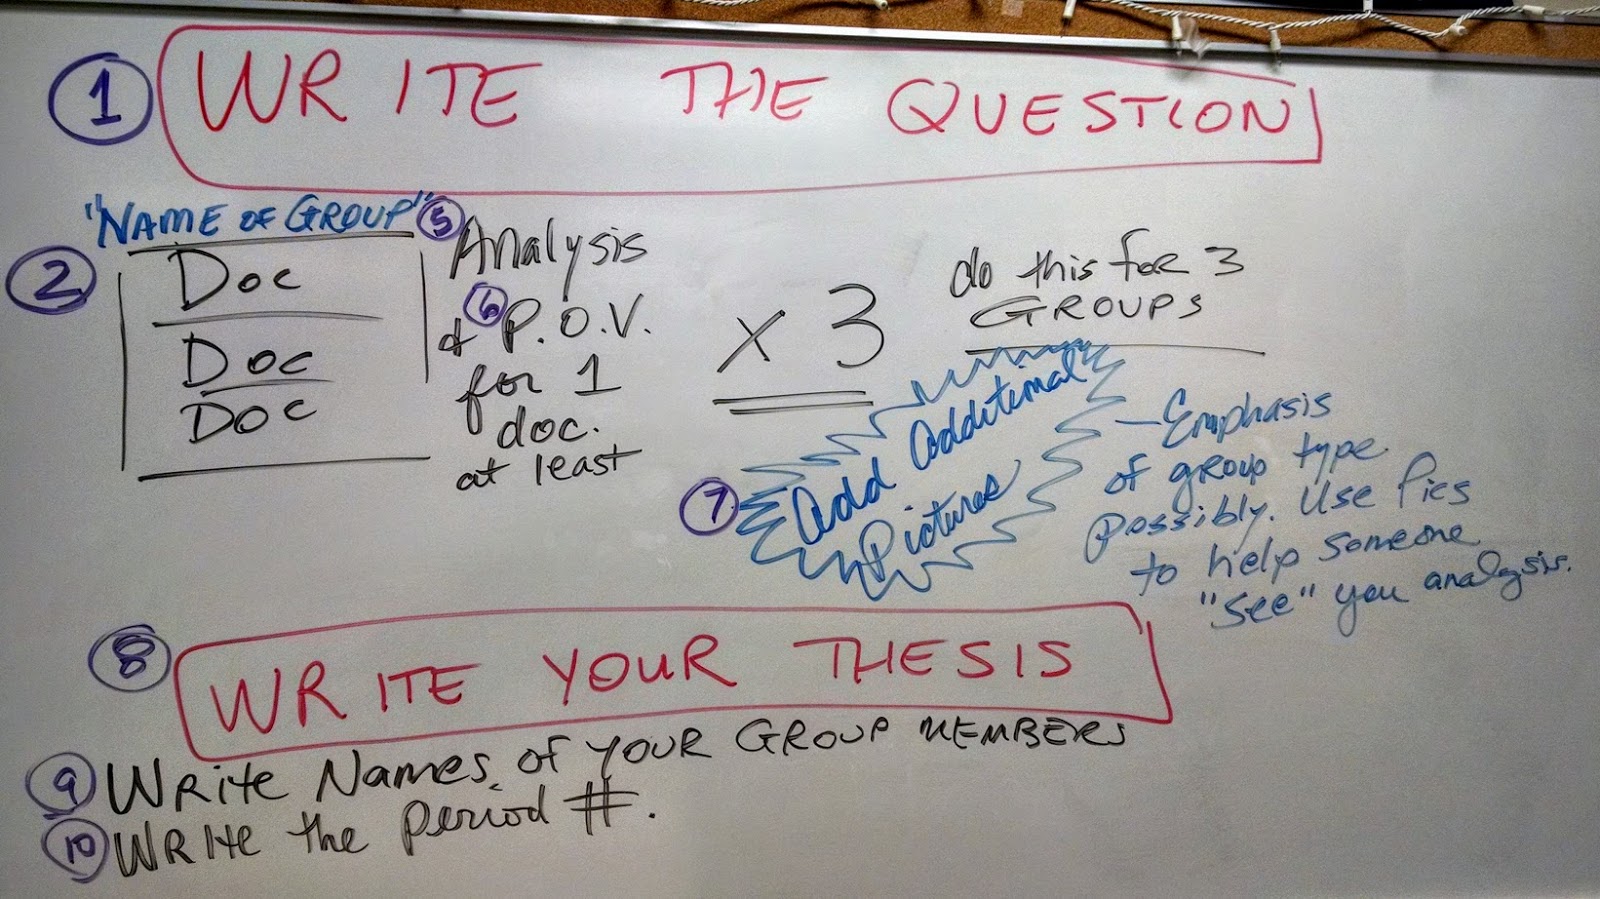 1 WRITE THE QUESTION
"NAME OF GROUP"
2 Doc
Doc
Doc
5 Analysis
& 6 P.O.V.
for 1
doc.
at least
x 3
do this for 3
GROUPS
7 Add Additional
Pictures
— Emphasis
of group type
possibly. Use Pics
to help someone
"see" you analysis.
8 WRITE YOUR THESIS
9 WRITE NAMES of YOUR GROUP MEMBERS
10 WRITE the period #.